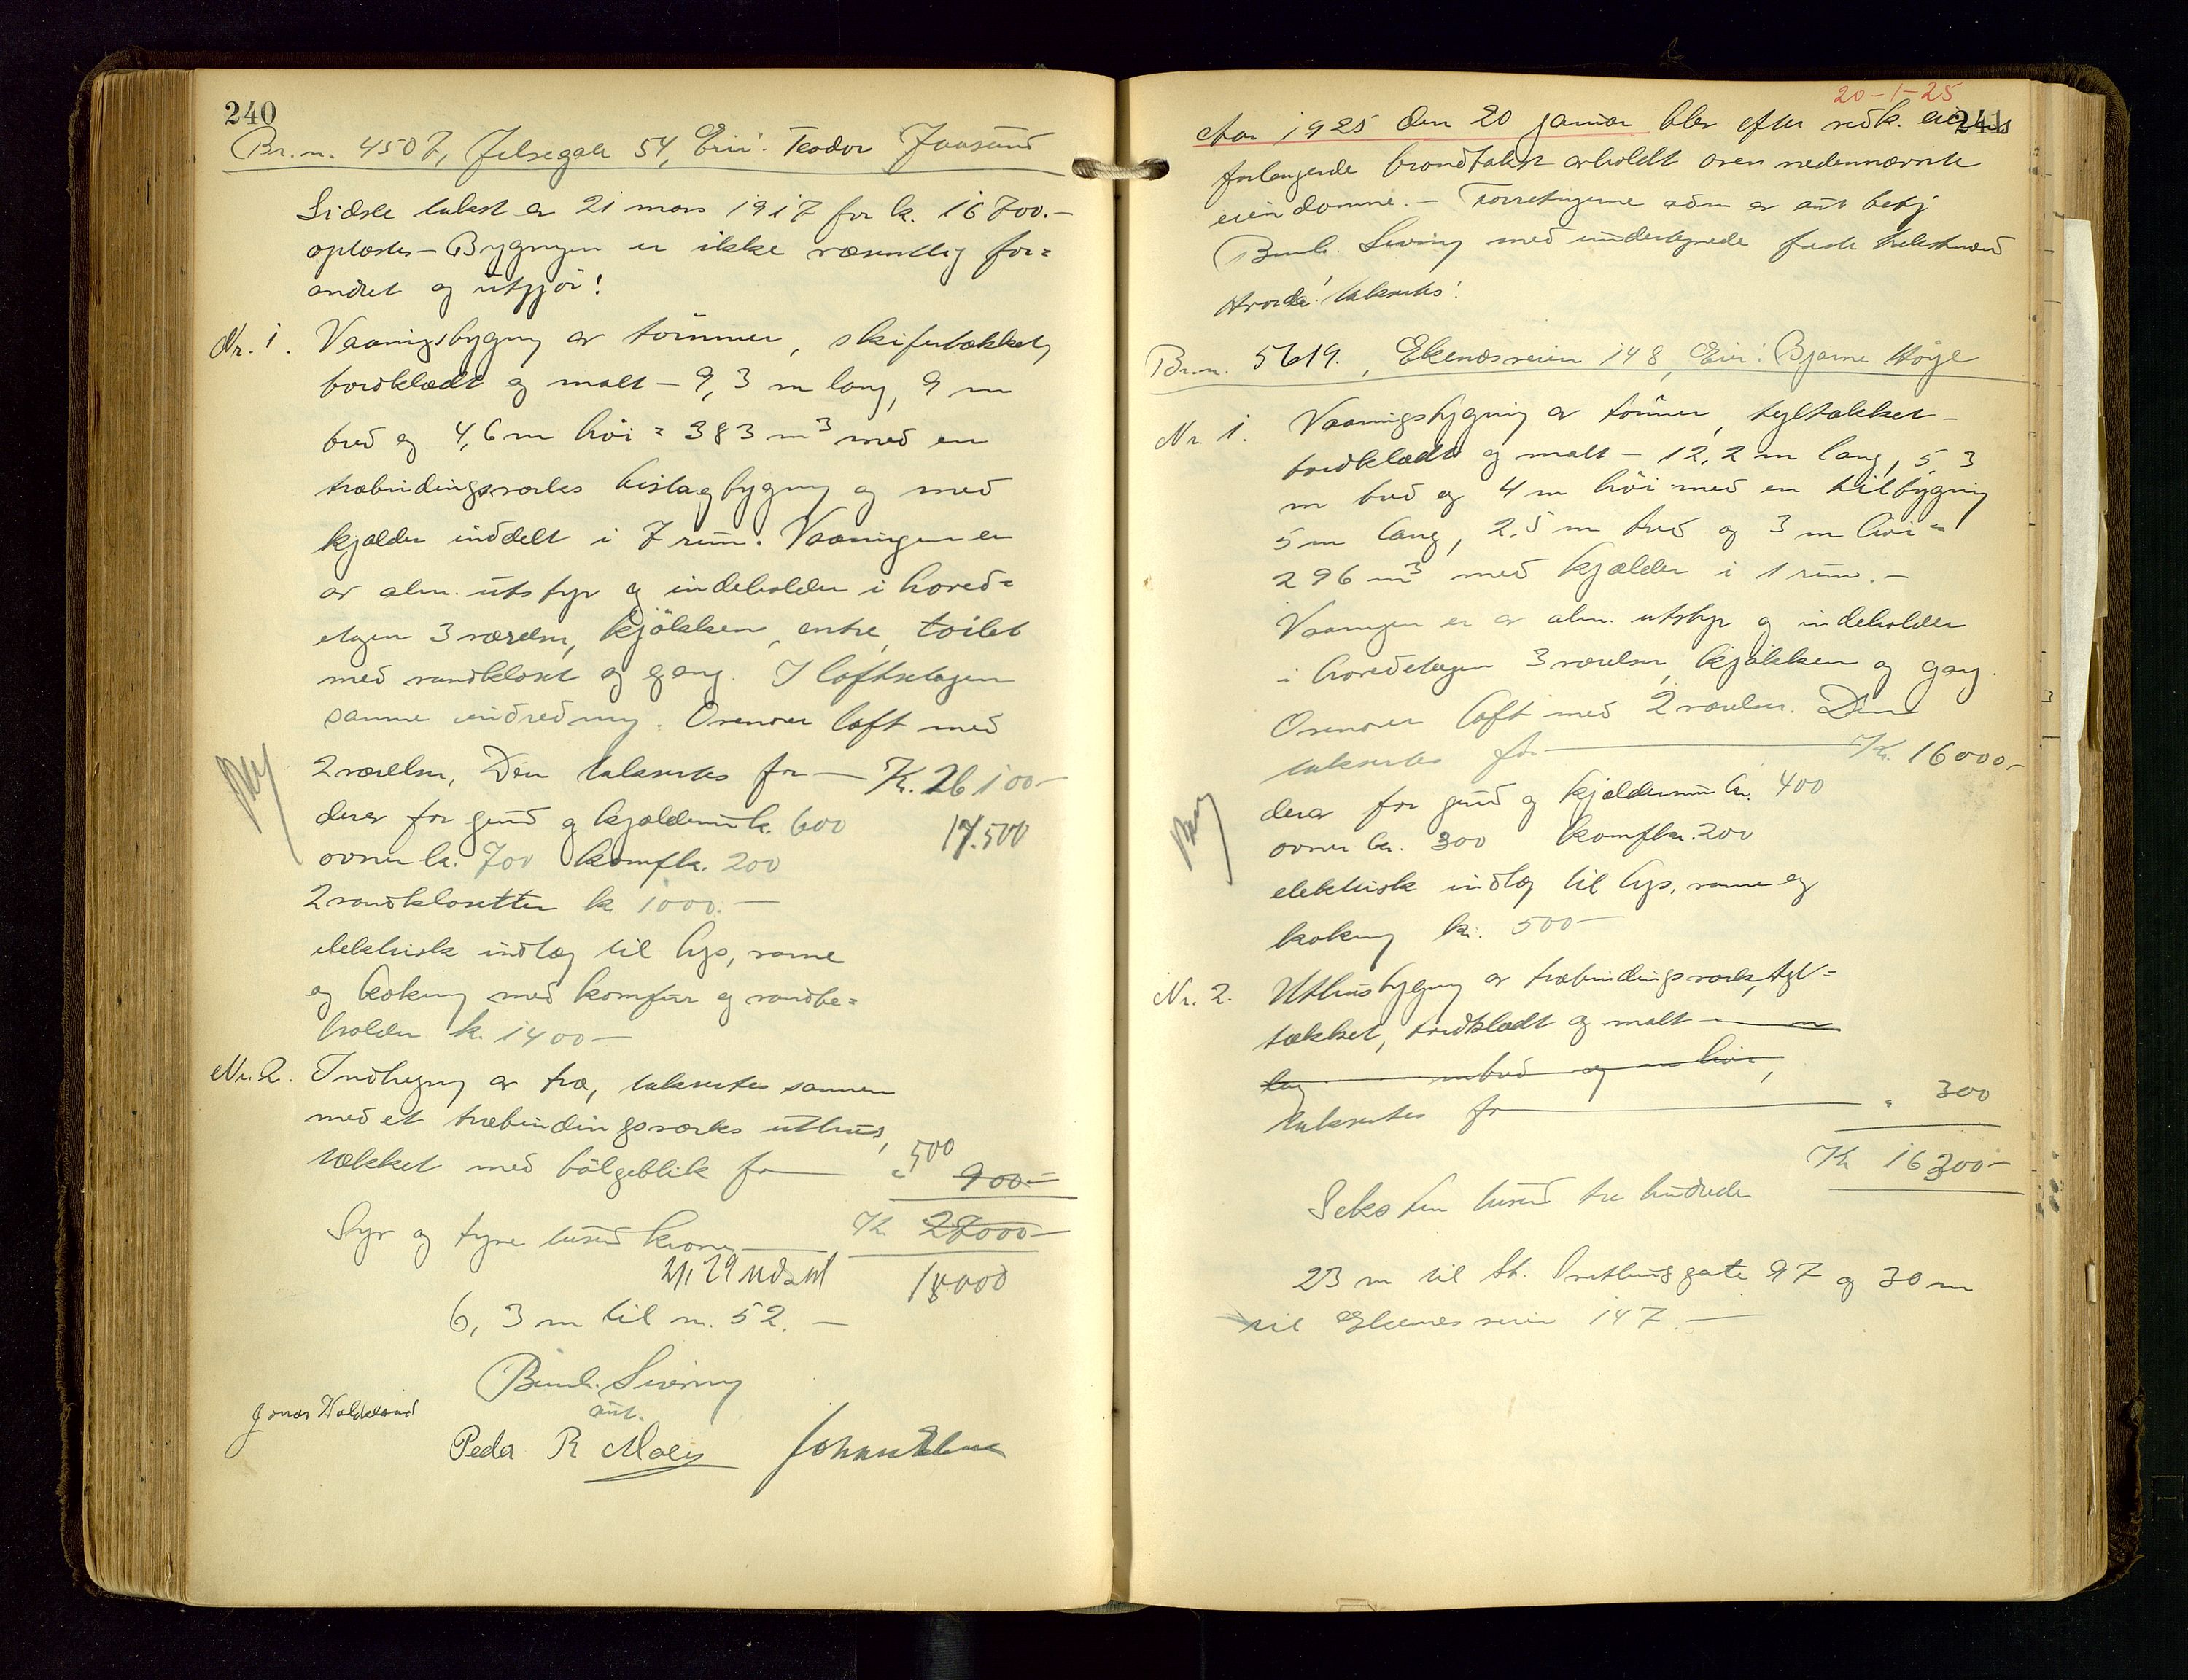 240
Br.n. 4507, Jelsegate 54, Eier: Teodor Jaasund
Sidste takst er 21 mars 1917 for k. 16700.-
oplæstes - Bygningen er ikke væsentlig for=
andret og utgjör:
Nr. 1. Vaaningsbygning av tömmer, skifertækket,
bordklædt og malt - 9,3 m lang, 9 m
bred og 4,6 m höi = 383 m³ med en
træbindingsværks bislagbygning og med
kjælder inddelt i 7 rum. Vaaningen er
av alm. utstyr og indeholder i hoved=
etagen 3 værelser, kjökken, entre, toilet
med vandkloset og gang. I loftsetagen
samme indredning. Ovenover loft med
2 værelser. Den takseres for - Kr. 26100-
derav for grund og kjælderrum k. 600 17.500
ovner kr. 700 komf kr. 200
2 vandklosetter k. 1000.-
elektrisk indlæg til lys, varme
og kokning med komfur og vandbe=
holder k. 1400-
Nr. 2. Indhegning av træ, takseres sammen
med et træbindingsværks uthus,
tækket med bölgeblik for " 500 900.-
Kr 27000-
Syv og tyve tusend kroner 18000
6,3 m til n. 52. -
Bernh. Sivering
aut.
Jonas Haldeland
Peder R Moeig Johan
20-1-25
241
Aar 1925 den 20 januar blev efter vedk. eieres
forlangende brandtakst avholdt over nedennævnte
eiendomme. - Forretningerne adm er aut betj
Bernh. Sivering med undertegnede faste takstmænd
Avorda! takseres:
Br.n. 5619., Ekenæsveien 148, Eier: Bjarne Höyl
Nr. 1. Vaaningsbygning av tömmer, tegltækket -
bordklædt og malt - 12,2 m lang, 5,3
m bred og 4 m höi med en tilbygning
5 m lang, 2,5 m bred og 3 m höi =
296 m³ med kjælder i 1 rum. -
Vaaningen er av alm. utstyr og indeholder
i hovedetagen 3 værelser, kjökken og gang.
Ovenover loft med 2 værelser. Den
takseres for Kr. 16000,-
derav for grund og kjælderrum kr. 400
ovner kr. 300 komf kr. 200
elektrisk indlæg til lys, varme og
kokning kr. 500-
Nr. 2. Uthusbygning av træbindingsværk, tegl=
tækket, bordklædt og malt - m
lang m bred og m höi,
takseres for " 300
Kr 16300-
Seksten tusend tre hundrede
23 m til St. Svithunsgate 97 og 30 m
til Ekenesveien 147. -